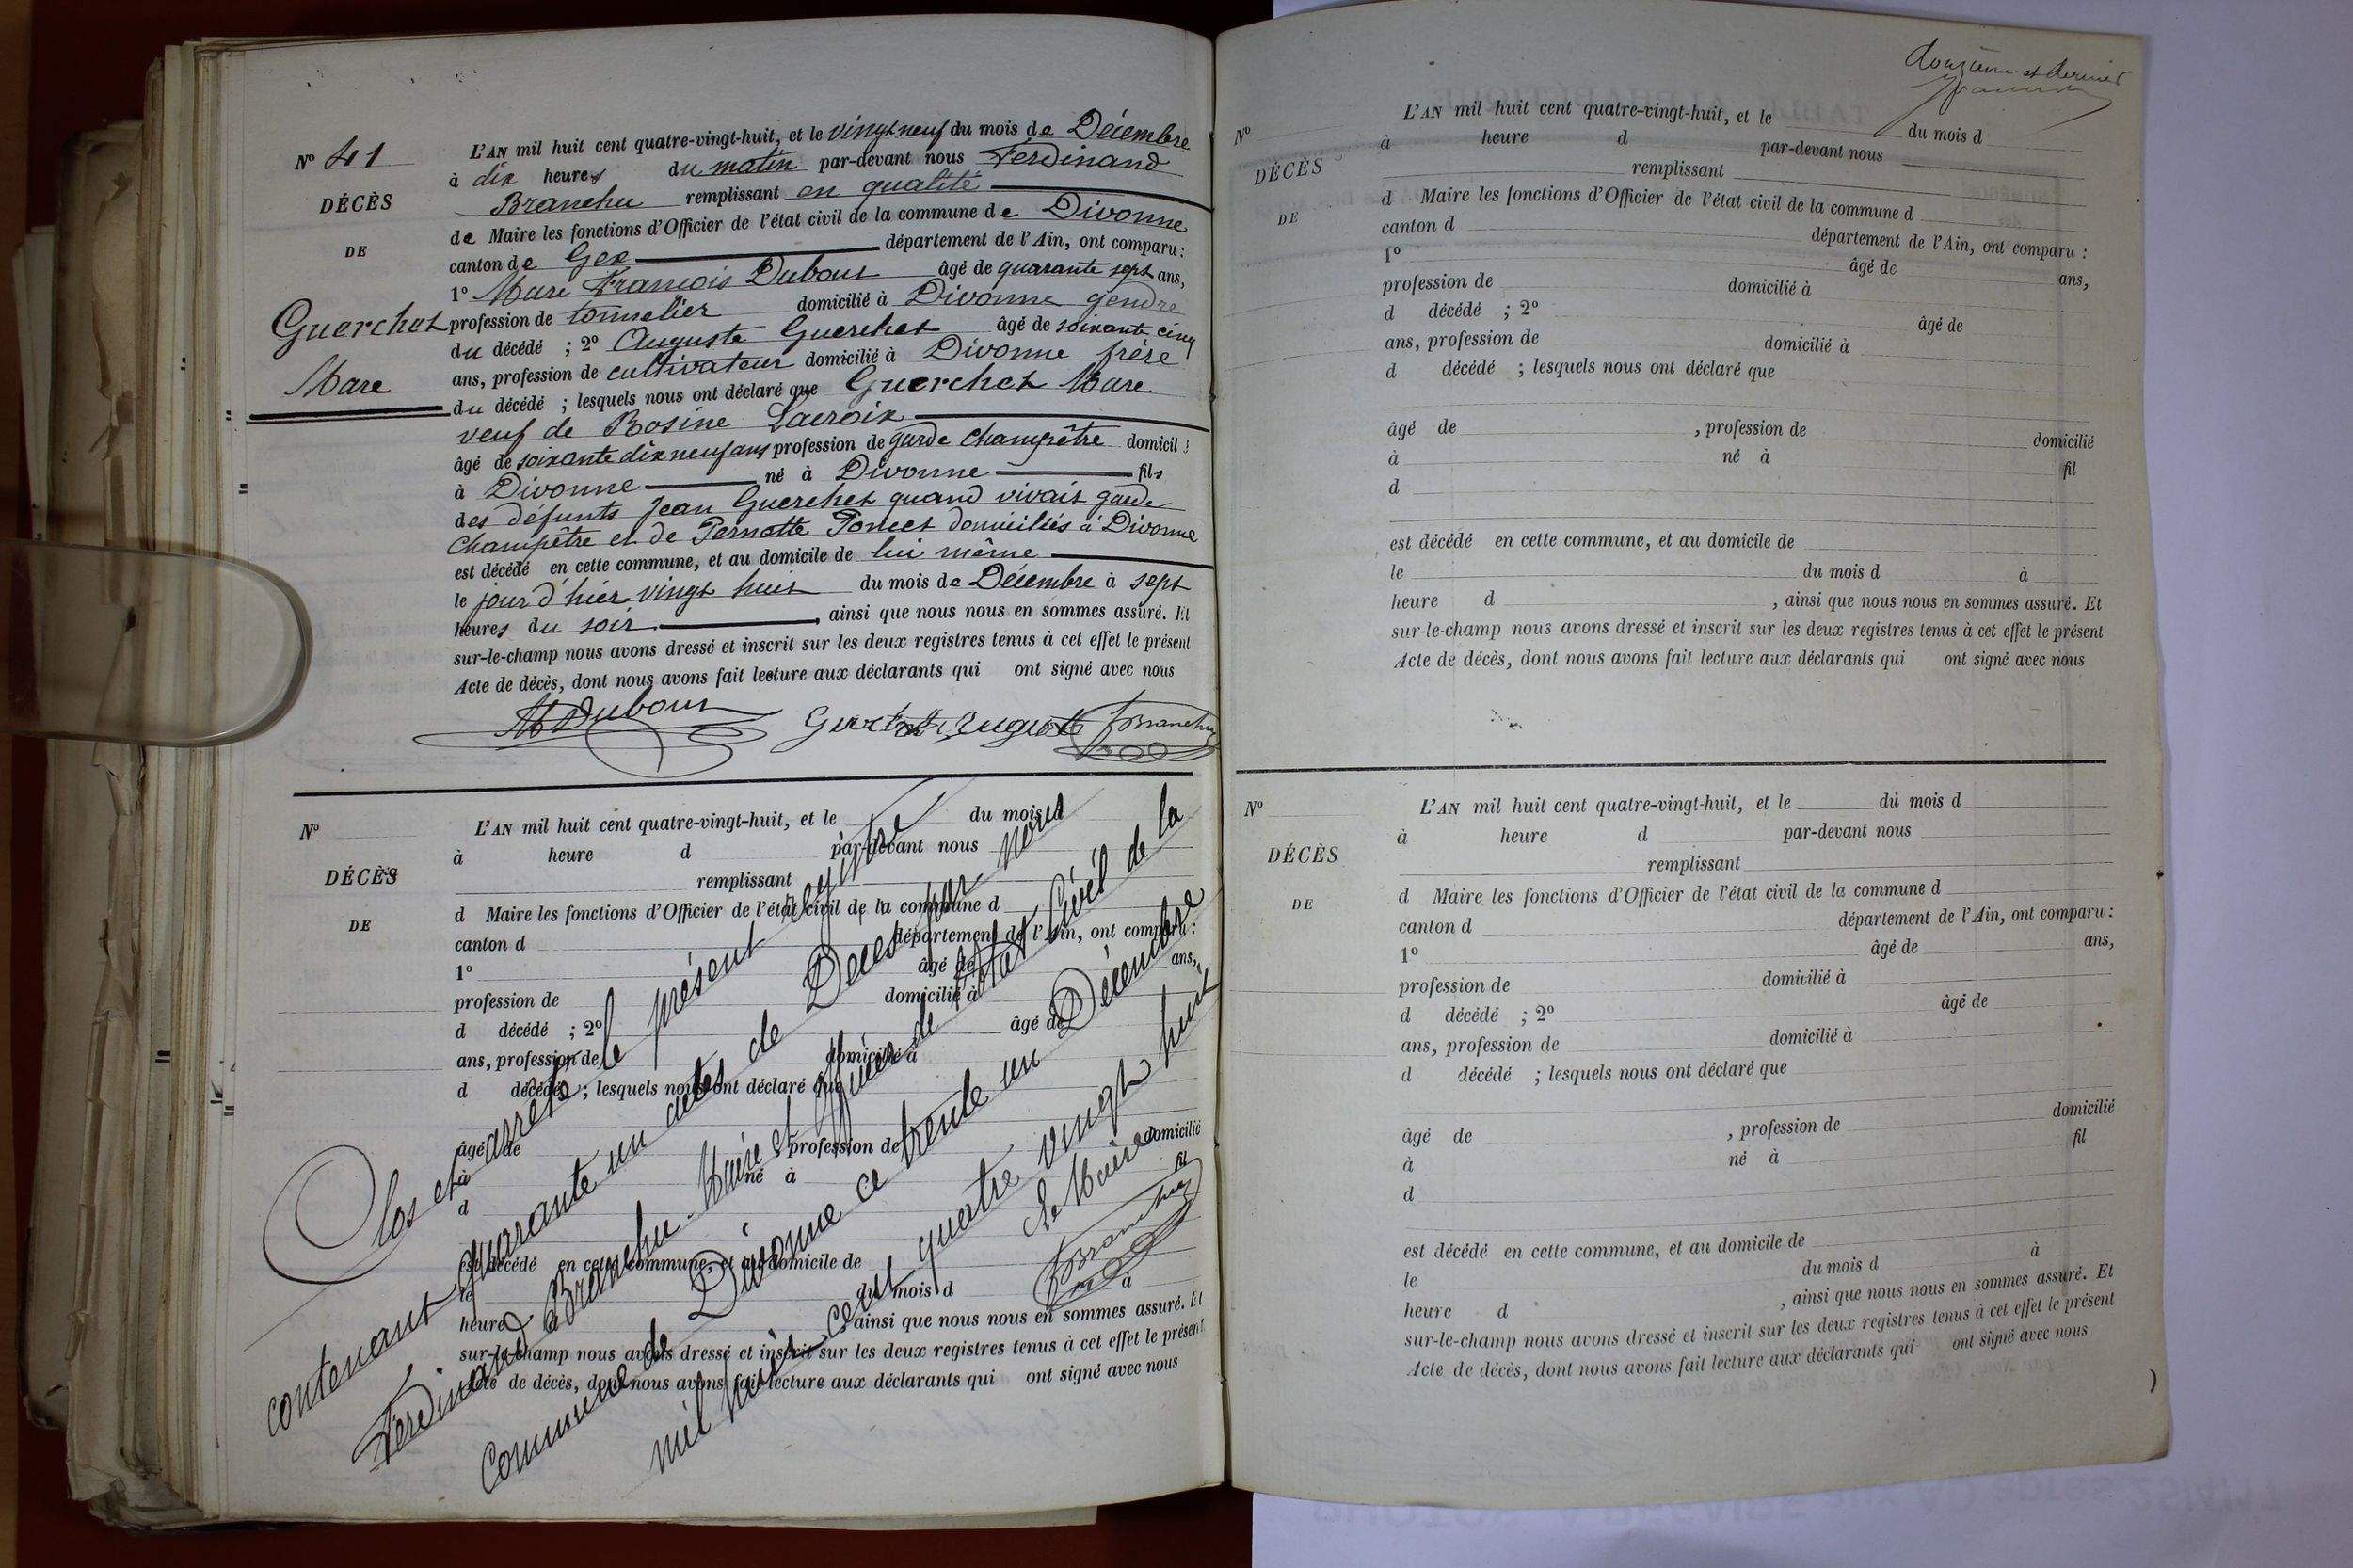 N° 41
DÉCÈS
DE
Guerchet
Marc
L'AN mil huit cent quatre-vingt-huit, et le vingt neuf du mois de Décembre
à dix heures du matin par-devant nous Ferdinand
Branchu remplissant en qualité
de Maire les fonctions d'Officier de l'état civil de la commune de Divonne
canton de Gex département de l'Ain, ont comparu :
1° Marc François Dubout âgé de quarante sept ans,
profession de tonnelier domicilié à Divonne gendre
du décédé ; 2° Auguste Guerchet âgé de soixante cinq
ans, profession de cultivateur domicilié à Divonne frère
du décédé ; lesquels nous ont déclaré que Guerchet Marc
veuf de Rosine Lacroix
âgé de soixante dix neuf ans profession de garde champêtre domicil
à Divonne né à Divonne fils
des défunts Jean Guerchet quand vivait garde
champêtre et de Pernette Poncet domiciliés à Divonne
est décédé en cette commune, et au domicile de lui même
le jour d'hier vingt huit du mois de Décembre à sept
heures du soir , ainsi que nous nous en sommes assuré. Et
sur-le-champ nous avons dressé et inscrit sur les deux registres tenus à cet effet le présent
Acte de décès, dont nous avons fait lecture aux déclarants qui ont signé avec nous
M Dubout Auguste FBranchu
N°
DÉCÈS
DE
L'AN mil huit cent quatre-vingt-huit, et le du mois d
à heure d par-devant nous
remplissant
d Maire les fonctions d'Officier de l'état civil de la commune d
canton d département de l'Ain, ont comparu :
1° âgé de ans,
profession de domicilié à
d décédé ; 2° âgé de
ans, profession de domicilié à
d décédé ; lesquels nous ont déclaré que
âgé de , profession de domicilié
à né à fil
d
est décédé en cette commune, et au domicile de
le du mois d à
heure d , ainsi que nous nous en sommes assuré. Et
sur-le-champ nous avons dressé et inscrit sur les deux registres tenus à cet effet le présent
Acte de décès, dont nous avons fait lecture aux déclarants qui ont signé avec nous
Clos et arrêté le présent registre
contenant quarante un actes de Décès par nous
Ferdinand Branchu Maire et Officier de l'état Civil de la
Commune de Divonne ce trente un Décembre
mil huit cent quatre vingt huit
Le Maire
FBranchu
douzième et dernier
N°
DÉCÈS
DE
L'AN mil huit cent quatre-vingt-huit, et le du mois d
à heure d par-devant nous
remplissant
d Maire les fonctions d'Officier de l'état civil de la commune d
canton d département de l'Ain, ont comparu :
1° âgé de ans,
profession de domicilié à
d décédé ; 2° âgé de
ans, profession de domicilié à
d décédé ; lesquels nous ont déclaré que
âgé de , profession de domicilié
à né à fil
d
est décédé en cette commune, et au domicile de
le du mois d à
heure d , ainsi que nous nous en sommes assuré. Et
sur-le-champ nous avons dressé et inscrit sur les deux registres tenus à cet effet le présent
Acte de décès, dont nous avons fait lecture aux déclarants qui ont signé avec nous
N°
DÉCÈS
DE
L'AN mil huit cent quatre-vingt-huit, et le du mois d
à heure d par-devant nous
remplissant
d Maire les fonctions d'Officier de l'état civil de la commune d
canton d département de l'Ain, ont comparu :
1° âgé de ans,
profession de domicilié à
d décédé ; 2° âgé de
ans, profession de domicilié à
d décédé ; lesquels nous ont déclaré que
âgé de , profession de domicilié
à né à fil
d
est décédé en cette commune, et au domicile de
le du mois d à
heure d , ainsi que nous nous en sommes assuré. Et
sur-le-champ nous avons dressé et inscrit sur les deux registres tenus à cet effet le présent
Acte de décès, dont nous avons fait lecture aux déclarants qui ont signé avec nous